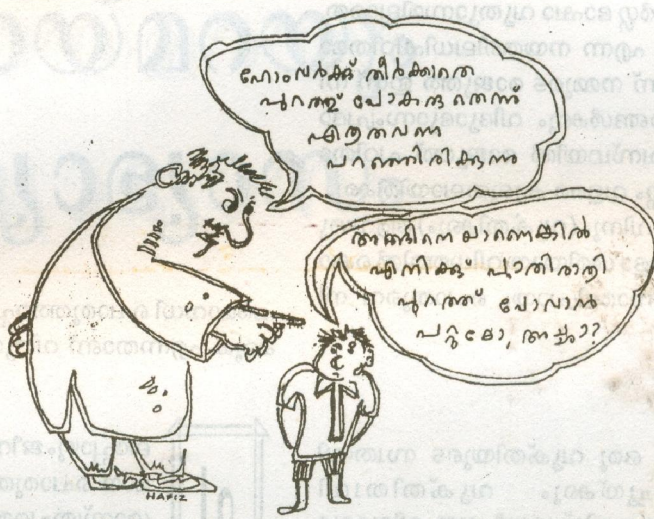 ഹോംവർക്ക് തീർക്കാതെ
പുറത്ത് പോകരുതെന്ന്
എത്രതവണ
പറഞ്ഞിരിക്കുന്നു
അങ്ങിനെയാണെങ്കിൽ
എനിക്കു പാതിരാത്രി
പുറത്ത് പോവാൻ
പറ്റുമോ അച്ഛാ?
HAFIZ